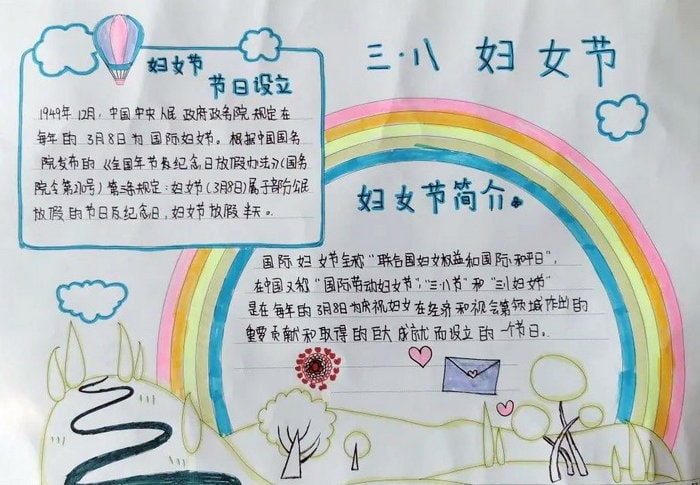 三·八 妇女节
妇女节
节日设立
1949年12月，中国中央人民政府政务院规定在
每年的3月8日为国际妇女节。根据中国国务
院发布的《全国年节及纪念日放假办法》（国务
院令第270号）第三条规定：妇女节（3月8日）属于部分公民
放假的节日及纪念日，妇女节放假半天。
妇女节简介。
国际妇女节全称“联合国妇女权益和国际和平日”，
在中国又称“国际劳动妇女节”，“三八节”和“三八妇女节”
是在每年的3月8日为庆祝妇女在经济和社会等领域作出的
重要贡献和取得的巨大成就而设立的一个节日。